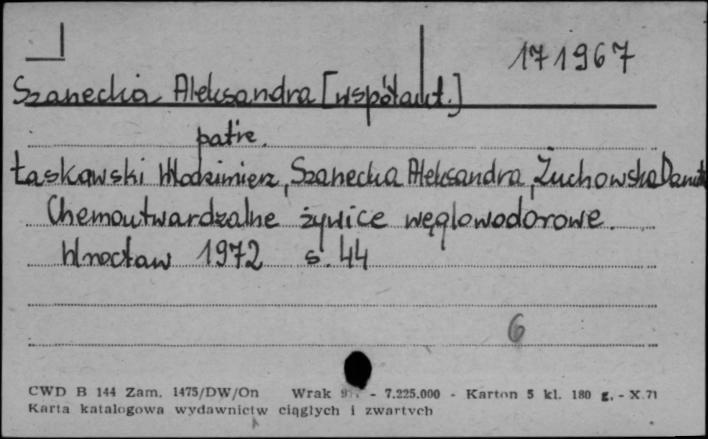 171967
Szanecka Aleksandra [współaut.]
patrz.
Łaskawski Włodzimierz, Szanecka Aleksandra, Żuchowska Danuta
Chemoutwardzalne żywice węglowodorowe.
Wrocław 1972 s. 44
6
CWD B 144 Zam. 1475/DW/On Wrak - 7.225.000 - Karton 5 kl. 180 g. - X.71
Karta katalogowa wydawnictw ciągłych i zwartych